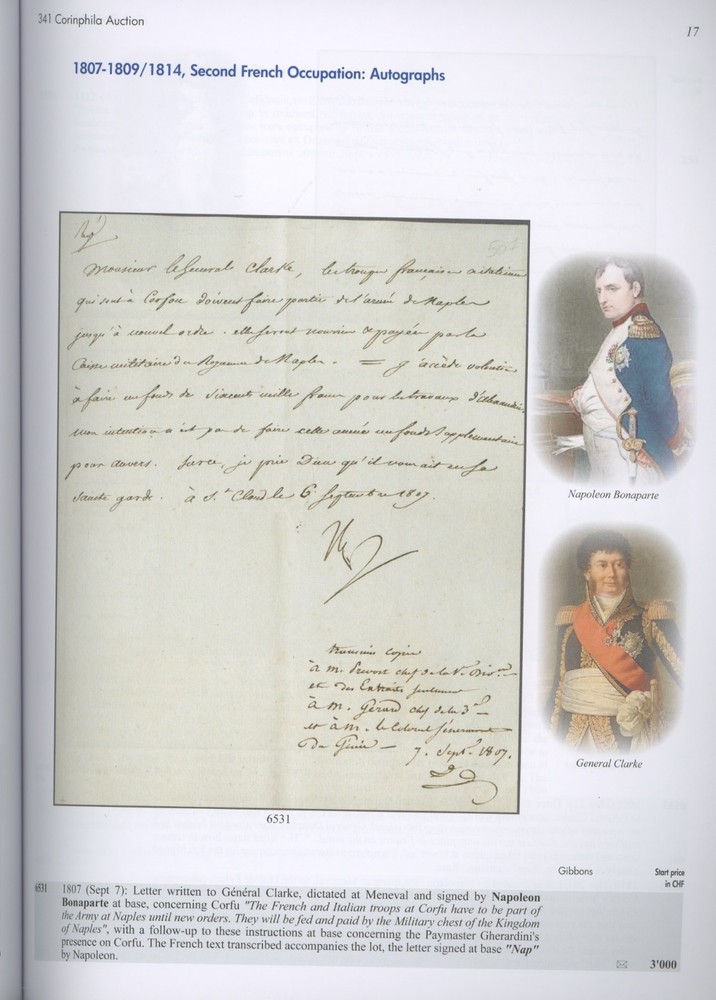 341 Corinphila Auction
17
1807-1809/1814, Second French Occupation: Autographs
Monsieur le General Clarke, les troupes françaises et italiennes
qui sont à Corfou doivent faire partie de l'armée de Naples
jusqu'à nouvel ordre. elles seront nourries et payées par la
Caisse militaire du Royaume de Naples. = J'accède volontiers
à faire un fonds de cinq cents mille francs pour les travaux d'Alexandrie
mon intention n'est pas de faire cette année un fonds supplémentaire
pour Anvers. Sur ce, je prie Dieu qu'il vous ait en sa
sainte garde. à St. Cloud le 6 Septembre 1807.
Nap
copie
à M. chef de la
et des Extraits
à M. Gérard chef de la 3e
et à M. le Colonel
Du Génie - 7. Sept. 1807.
6531
Napoleon Bonaparte
General Clarke
Gibbons
Start price
in CHF
6531
1807 (Sept 7): Letter written to Général Clarke, dictated at Meneval and signed by Napoleon
Bonaparte at base, concerning Corfu "The French and Italian troops at Corfu have to be part of
the Army at Naples until new orders. They will be fed and paid by the Military chest of the Kingdom
of Naples", with a follow-up to these instructions at base concerning the Paymaster Gherardini's
presence on Corfu. The French text transcribed accompanies the lot, the letter signed at base "Nap"
by Napoleon.
3'000